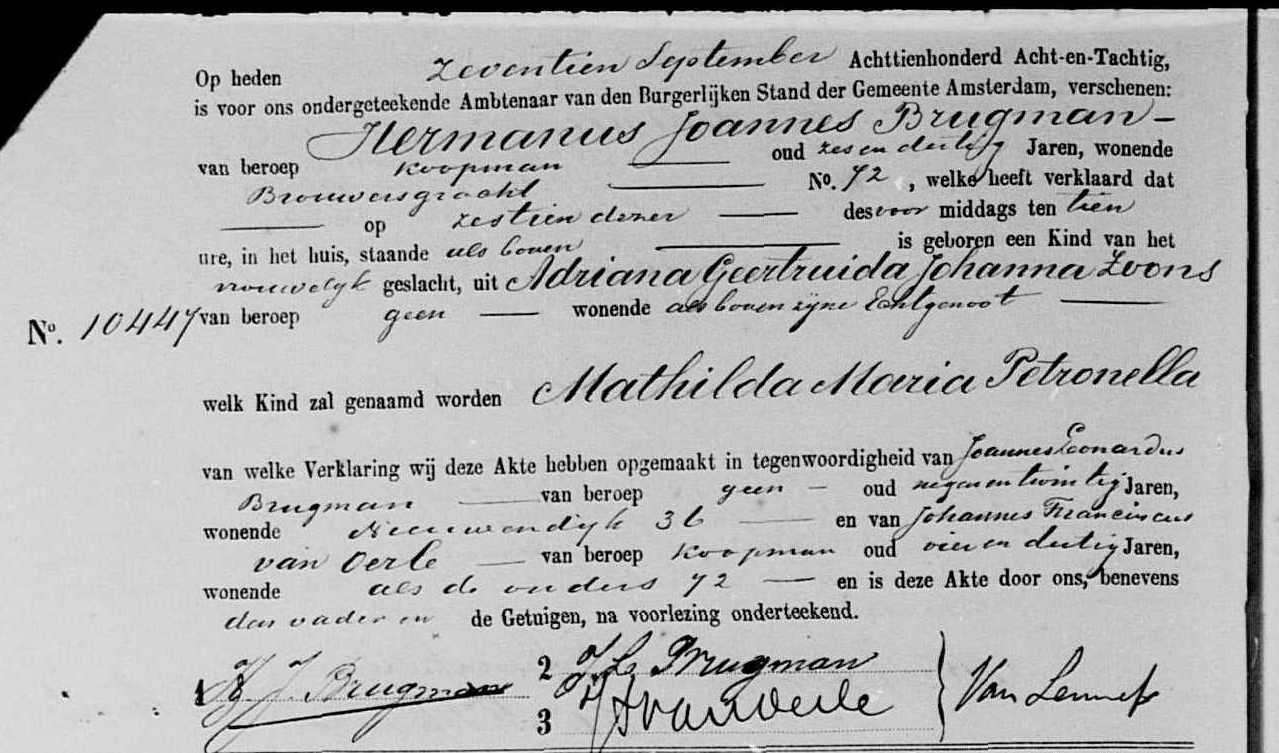 Op heden zeventien September Achttienhonderd Acht-en-Tachtig,
is voor ons ondergeteekende Ambtenaar van den Burgerlijken Stand der Gemeente Amsterdam, verschenen:
Hermanus Joannes Brugman
van beroep koopman oud zes en dertig Jaren, wonende
Brouwersgracht No. 72, welke heeft verklaard dat
op zestien dezer des voor middags ten tien
ure, in het huis, staande als boven is geboren een Kind van het
vrouwelijk geslacht, uit Adriana Geertruida Johanna Zoons
No. 10447 van beroep geen wonende als boven zijne Echtgenoot
welk Kind zal genaamd worden Mathilda Maria Petronella
van welke Verklaring wij deze Akte hebben opgemaakt in tegenwoordigheid van Joannes Leonardus
Brugman van beroep geen oud negen en twintig Jaren,
wonende Nieuwendijk 36 en van Johannes Franciscus
van Oerle van beroep koopman oud vier en dertig Jaren,
wonende als de ouders 72 en is deze Akte door ons, benevens
den vader en de Getuigen, na voorlezing onderteekend.
1 H J Brugman 2 J L Brugman Van Lennep
3 J F van Oerle